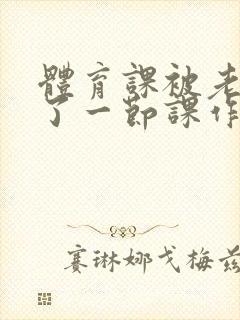 體育課被老
了一節課作
賽琳娜戈梅茲